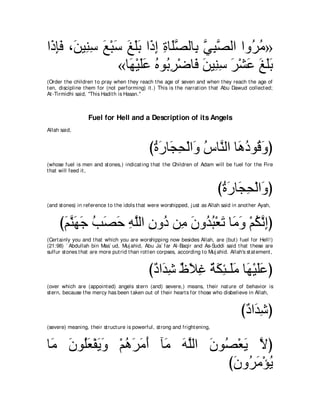 «مُرُوا الصَّبِيَّ بِالصَّلَاةِ إِذَا بَلَغَ سَبْعَ سِنِينَ، فَإِذَا
بَلَغَ عَشْرَ سِنِينَ فَاضْرِبُوهُ عَلَيْهَا»
(Order the children to pray when they reach the age of seven and when they reach the age of
ten, discipline them for (not performing) it.) This is the narration that Abu Dawud collected;
At-Tirmidhi said, "This Hadith is Hasan."
Fuel for Hell and a Description of its Angels
Allah said,
(وَقُودُهَا النَّاسُ وَالْحِجَارَةُ)
(whose fuel is men and stones,) indicating that the Children of Adam will be fuel for the Fire
that will feed it,
(وَالْحِجَارَةُ)
(and stones) in reference to the idols that were worshipped, just as Allah said in another Ayah,
(إِنَّكُمْ وَمَا تَعْبُدُونَ مِن دُونِ اللَّهِ حَصَبُ جَهَنَّمَ)
(Certainly you and that which you are worshipping now besides Allah, are (but) fuel for Hell!)
(21:98) `Abdullah bin Mas`ud, Mujahid, Abu Ja`far Al-Baqir and As-Suddi said that these are
sulfur stones that are more putrid than rotten corpses, according to Mujahid. Allah's statement,
(عَلَيْهَا مَلَـئِكَةٌ غِلاَظٌ شِدَادٌ)
(over which are (appointed) angels stern (and) severe,) means, their nature of behavior is
stern, because the mercy has been taken out of their hearts for those who disbelieve in Allah,
(شِدَادٌ)
(severe) meaning, their structure is powerful, strong and frightening,
(لاَّ يَعْصُونَ اللَّهَ مَآ أَمَرَهُمْ وَيَفْعَلُونَ مَا
يُؤْمَرُونَ)